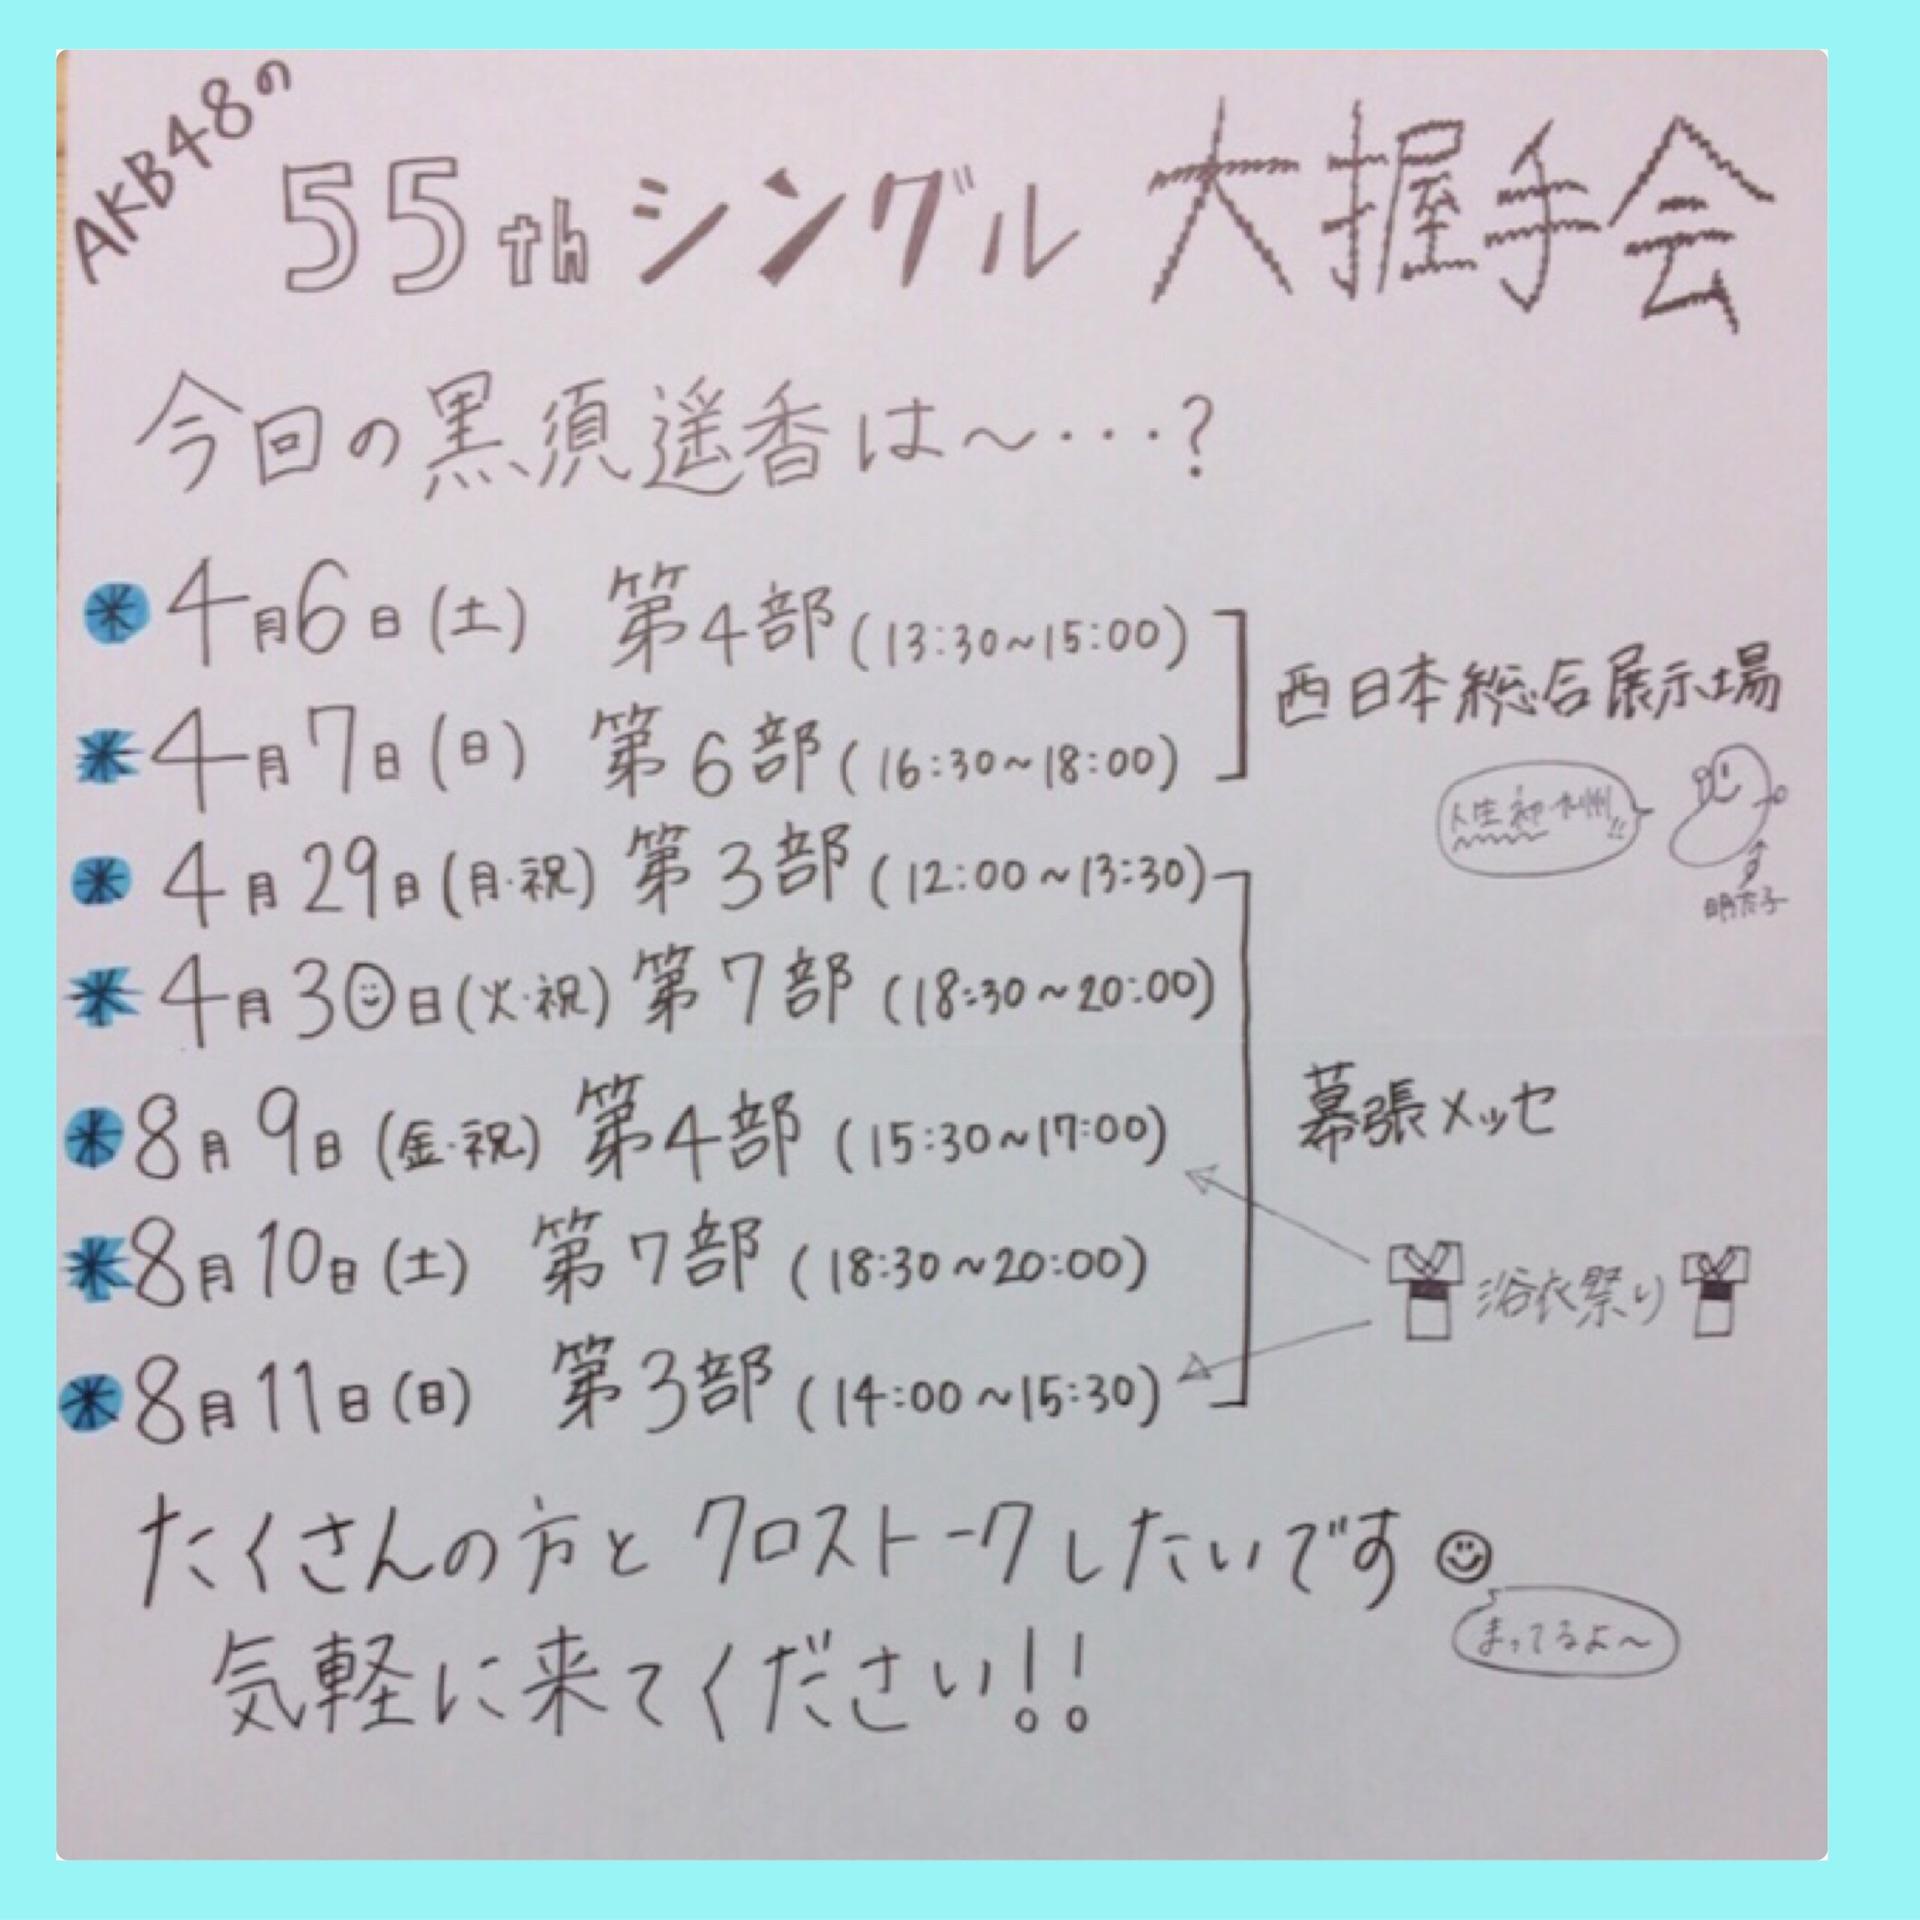 AKB48の
55thシングル 大握手会
今回の黒須遥香は〜・・・?
4月6日(土) 第4部(13:30〜15:00)
西日本総合展示場
4月7日(日) 第6部(16:30〜18:00)
人生初九州!!
明太子
4月29日(月・祝) 第3部(12:00〜13:30)
4月30日(火・祝) 第7部(18:30〜20:00)
幕張メッセ
8月9日(金・祝) 第4部(15:30〜17:00)
浴衣祭り
8月10日(土) 第7部(18:30〜20:00)
8月11日(日) 第3部(14:00〜15:30)
たくさんの方とクロストークしたいです
まってるよ〜
気軽に来てください!!